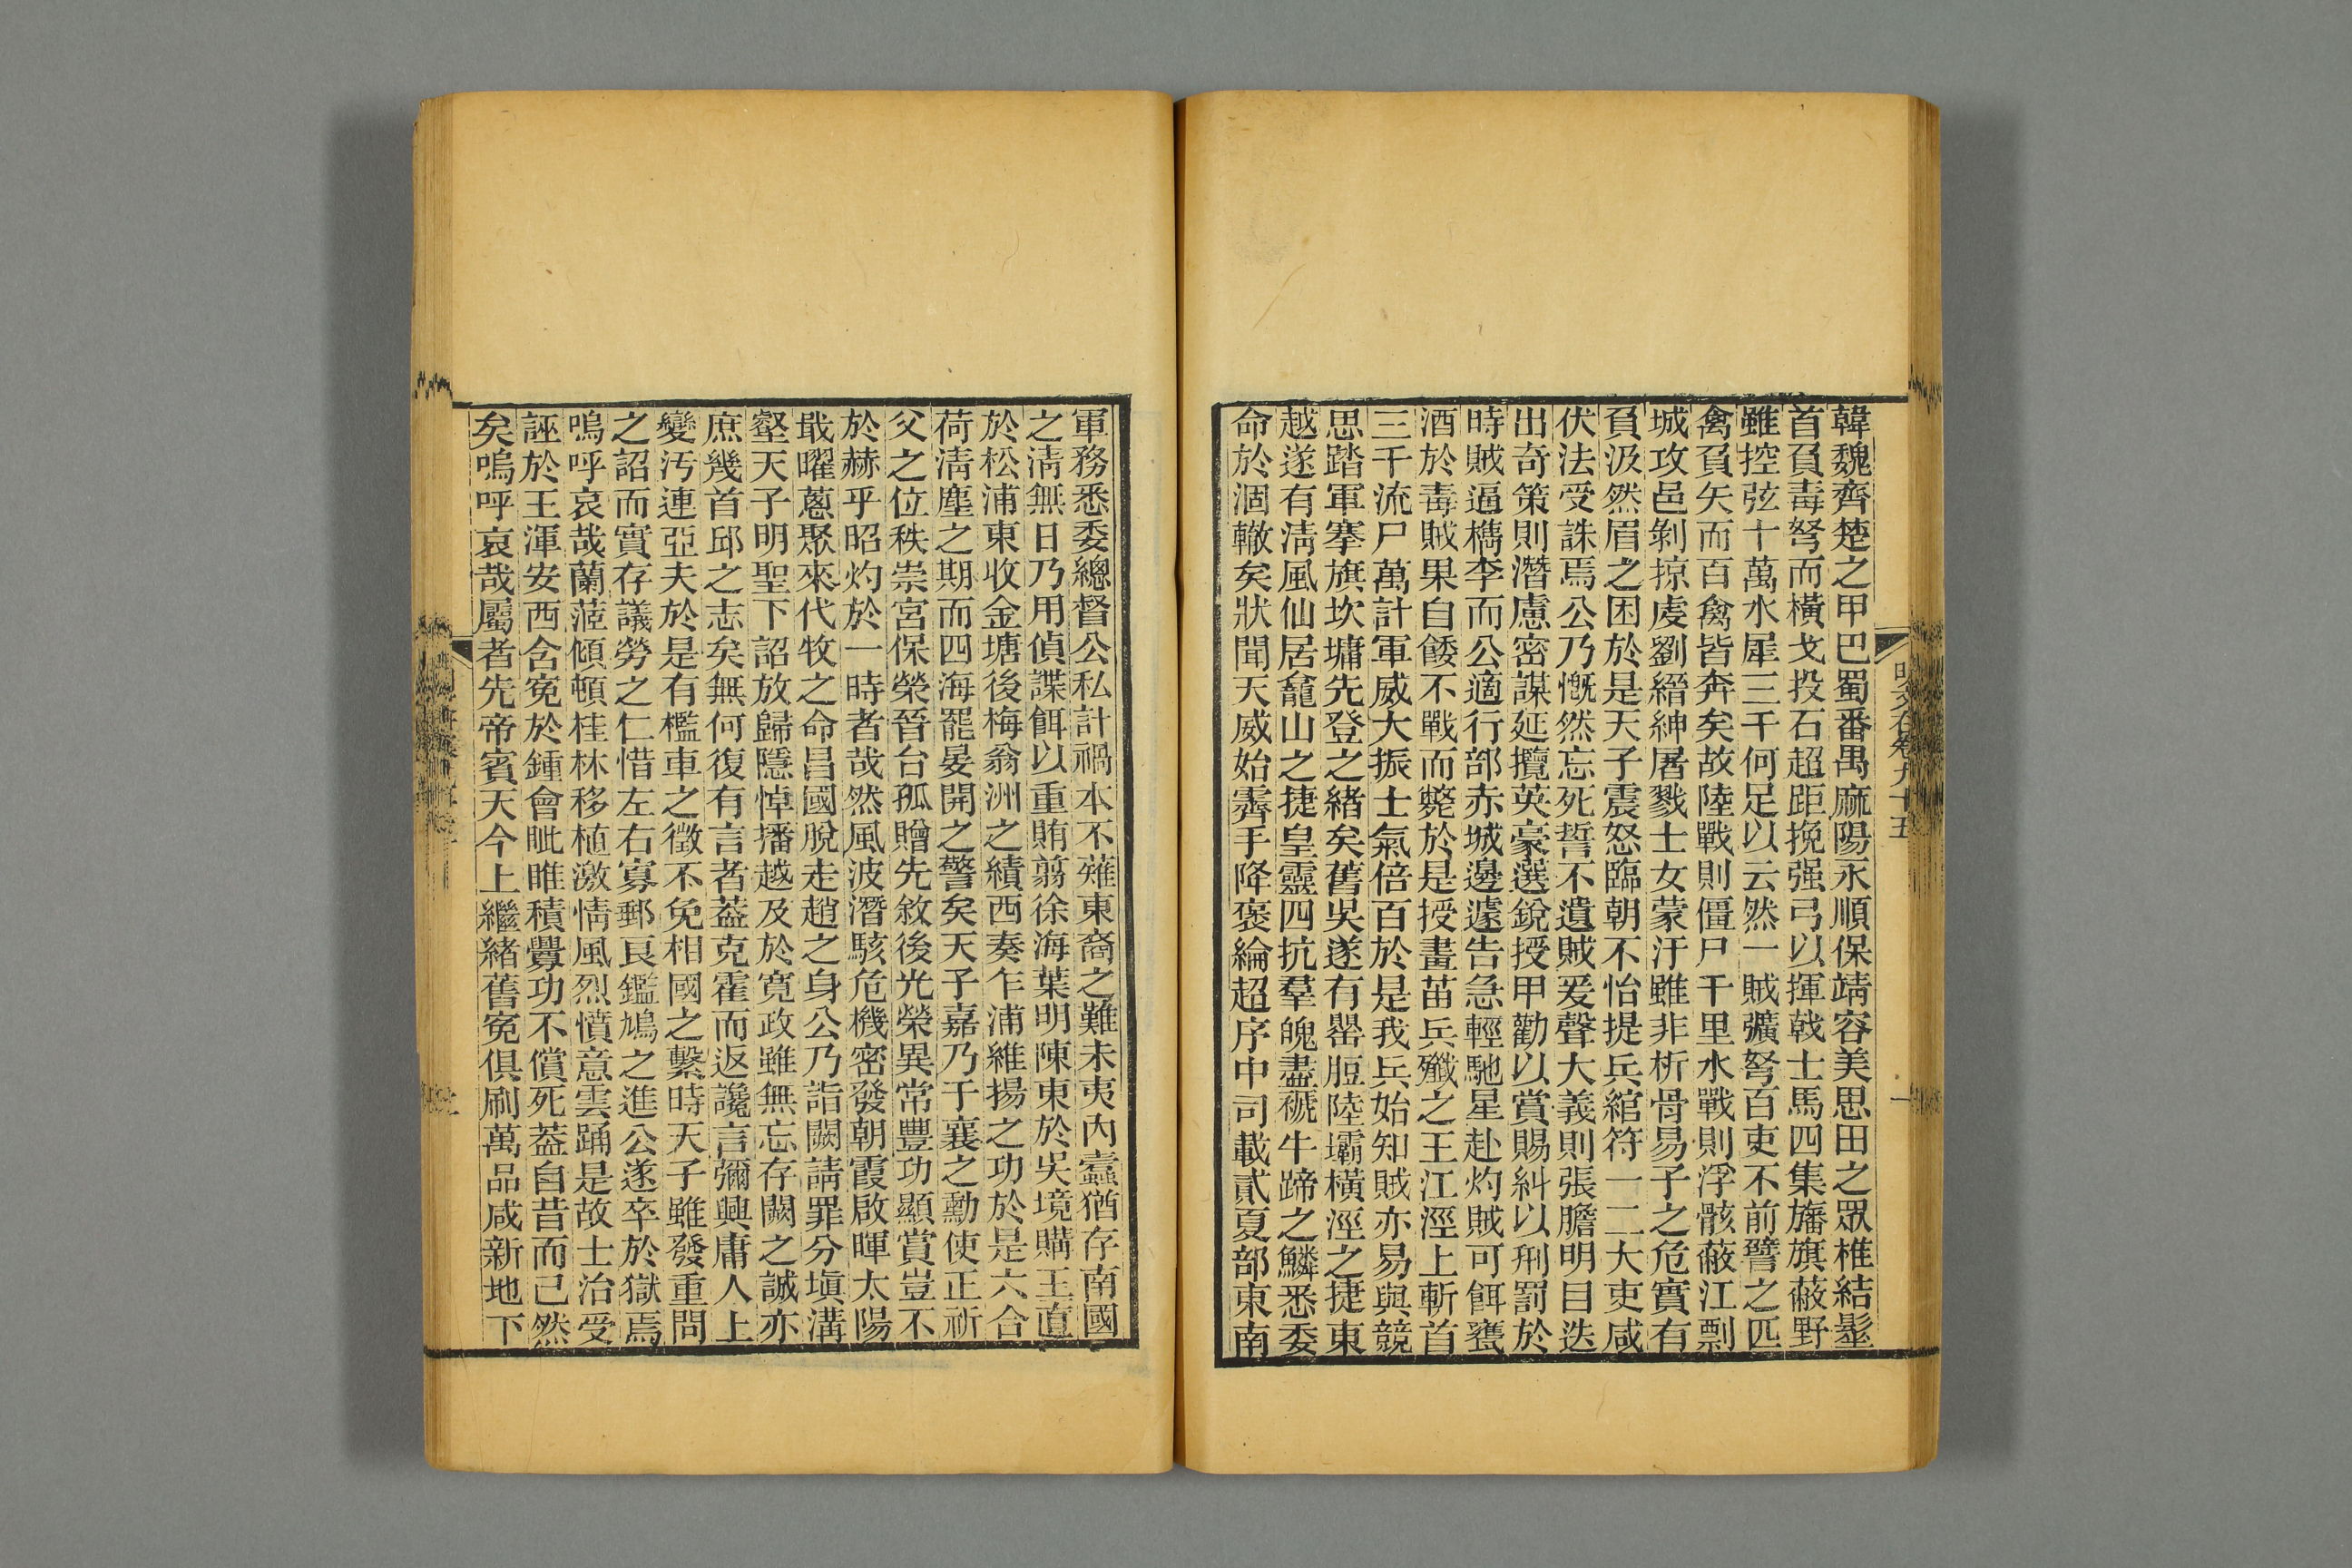 韓魏齊楚之甲巴蜀番禺麻陽永順保靖容美思田之眾椎結髽
首負毒弩而橫戈投石超距挽强弓以揮戟士馬四集旛旗蔽野
雖控弦十萬水犀三千何足以云然一賊彍弩百吏不前譬之匹
禽負矢而百禽皆奔矣故陸戰則僵尸千里水戰則浮骸蔽江剽
城攻邑剝掠虔劉縉紳屠戮士女蒙汙雖非析骨易子之危實有
負汲然眉之困於是天子震怒臨朝不怡提兵綰符一二大吏咸
伏法受誅焉公乃慨然忘死誓不遺賊爰聲大義則張膽明目迭
出奇策則潛慮密謀延攬英豪選銳授甲勸以賞賜糾以刑罰於
時賊逼檇李而公適行部赤城邊遽告急輕馳星赴灼賊可餌甕
酒於毒賊果自餧不戰而斃於是授畫苗兵殲之王江涇上斬首
三千流尸萬計軍威大振士氣倍百於是我兵始知賊亦易與競
思踏軍搴旗坎墉先登之緒矣舊吳遂有罌脰陸壩橫涇之捷東
越遂有淸風仙居龕山之捷皇靈四抗羣魄盡褫牛蹄之鱗悉委
命於涸轍矣狀聞天威始霽手降褒綸超序中司載貳夏部東南
明文在卷九十五
一
軍務悉委總督公私計禍本不薙東裔之難未夷內蠹猶存南國
之淸無日乃用偵諜餌以重賄翦徐海葉明陳東於吳境購王直
於松浦東收金塘後梅翁洲之績西奏乍浦維揚之功於是六合
荷淸塵之期而四海罷晏開之警矣天子嘉乃于襄之勳使正祈
父之位秩崇宮保榮晉台孤贈先敘後光榮異常豐功顯賞豈不
於赫乎昭灼於一時者哉然風波潛駭危機密發朝霞啟暉太陽
戢曜蔥聚來代牧之命昌國脫走趙之身公乃詣闕請罪分塡溝
壑天子明聖下詔放歸隱悼播越及於寬政雖無忘存闕之誠亦
庶幾首邱之志矣無何復有言者葢克霍而返讒言彌興庸人上
變汚連亞夫於是有檻車之徵不免相國之繫時天子雖發重問
之詔而實存議勞之仁惜左右寡郵良鑑鳩之進公遂卒於獄焉
嗚呼哀哉蘭蒞傾頓桂林移植激情風烈憤意雲踊是故士治受
誣於王渾安西含寃於鍾會眦睢積釁功不償死葢自昔而已然
矣嗚呼哀哉屬者先帝賓天今上繼緒舊寃俱刷萬品咸新地下